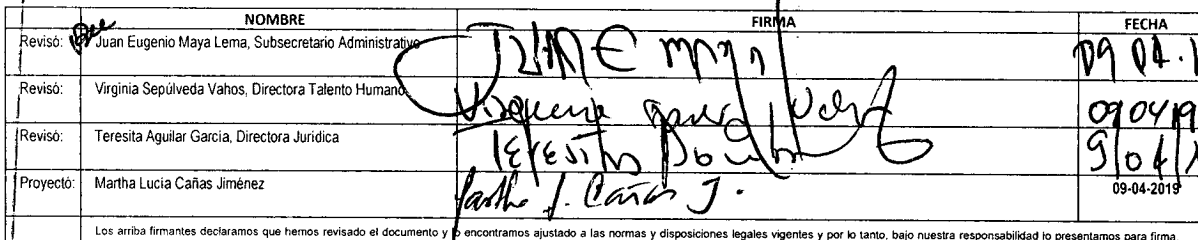 NOMBRE FIRMA FECHA
Revisó: Juan Eugenio Maya Lema, Subsecretario Administrativo
Revisó: Virginia Sepúlveda Vahos, Directora Talento Humano 090419
Revisó: Teresita Aguilar García, Directora Jurídica
Proyectó: Martha Lucia Cañas Jiménez Martha L. Cañas J. 09-04-2019
Los arriba firmantes declaramos que hemos revisado el documento y lo encontramos ajustado a las normas y disposiciones legales vigentes y por lo tanto, bajo nuestra responsabilidad lo presentamos para firma.